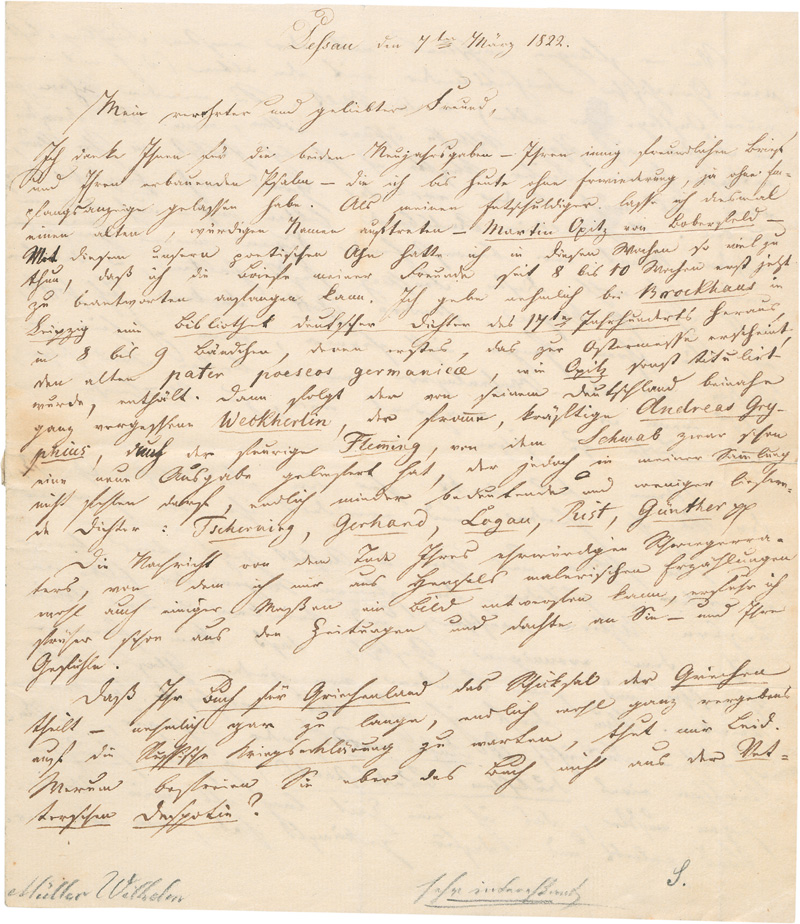 Dessau den 7ten März 1822.
Mein verehrter und geliebter Freund,
Ich danke Ihnen für die beiden Neujahrsgaben – Ihren innig freundlichen Brief
und Ihren erbauenden Psalm – die ich bis heute ohne Erwiederung, ja ohne Em-
pfangsanzeige gelassen habe. Als meinen Entschuldiger lasse ich diesmal
einen alten, würdigen Namen auftreten – Martin Opitz von Boberfeld –
Mit diesem unsern poetischen Ahn hatte ich in diesen Wochen so viel zu
thun, daß ich die Briefe meiner Freunde seit 8 bis 10 Wochen erst jetzt
zu beantworten anfangen kann. Ich gebe nehmlich bei Brockhaus in
Leipzig eine Bibliothek deutscher Dichter des 17ten Jahrhunderts heraus,
in 8 bis 9 Bändchen, deren erstes, das zur Ostermesse erscheint,
den alten pater poeseos germanicæ, wie Opitz sonst titulirt
wurde, enthält. Dann folgt der von seinem Deutschland beinahe
ganz vergessene Weckherlin, der fromme, kräftige Andreas Gry-
phius, auch der feurige Flemming, von dem Schwab zwar schon
eine neue Ausgabe geliefert hat, der jedoch in meiner Samlung
nicht fehlen darf, endlich minder bedeutende und weniger liefern-
de Dichter: Tscherning, Gerhard, Logau, Rist, Günther pp
Die Nachricht von dem Tode Ihres ehrwürdigen Schwiegerva-
ters, von dem ich mir aus Hensels malerischen Erzählungen
wohl auch einiger Maßen ein Bild entwerfen kann, erfuhr ich
früher schon aus den Zeitungen und dachte an Sie – und Ihre
Gefühle.
Daß Ihr Buch für Griechenland das Schicksal der Griechen
theilt – nehmlich gar zu lange, endlich wohl ganz vergebens
auf die Russische Kriegserklärung zu warten, thut mir Leid.
Warum befreien Sie aber das Buch nicht aus der Vet-
terschen Despotie?
Müller Wilhelm sehr interessant S.